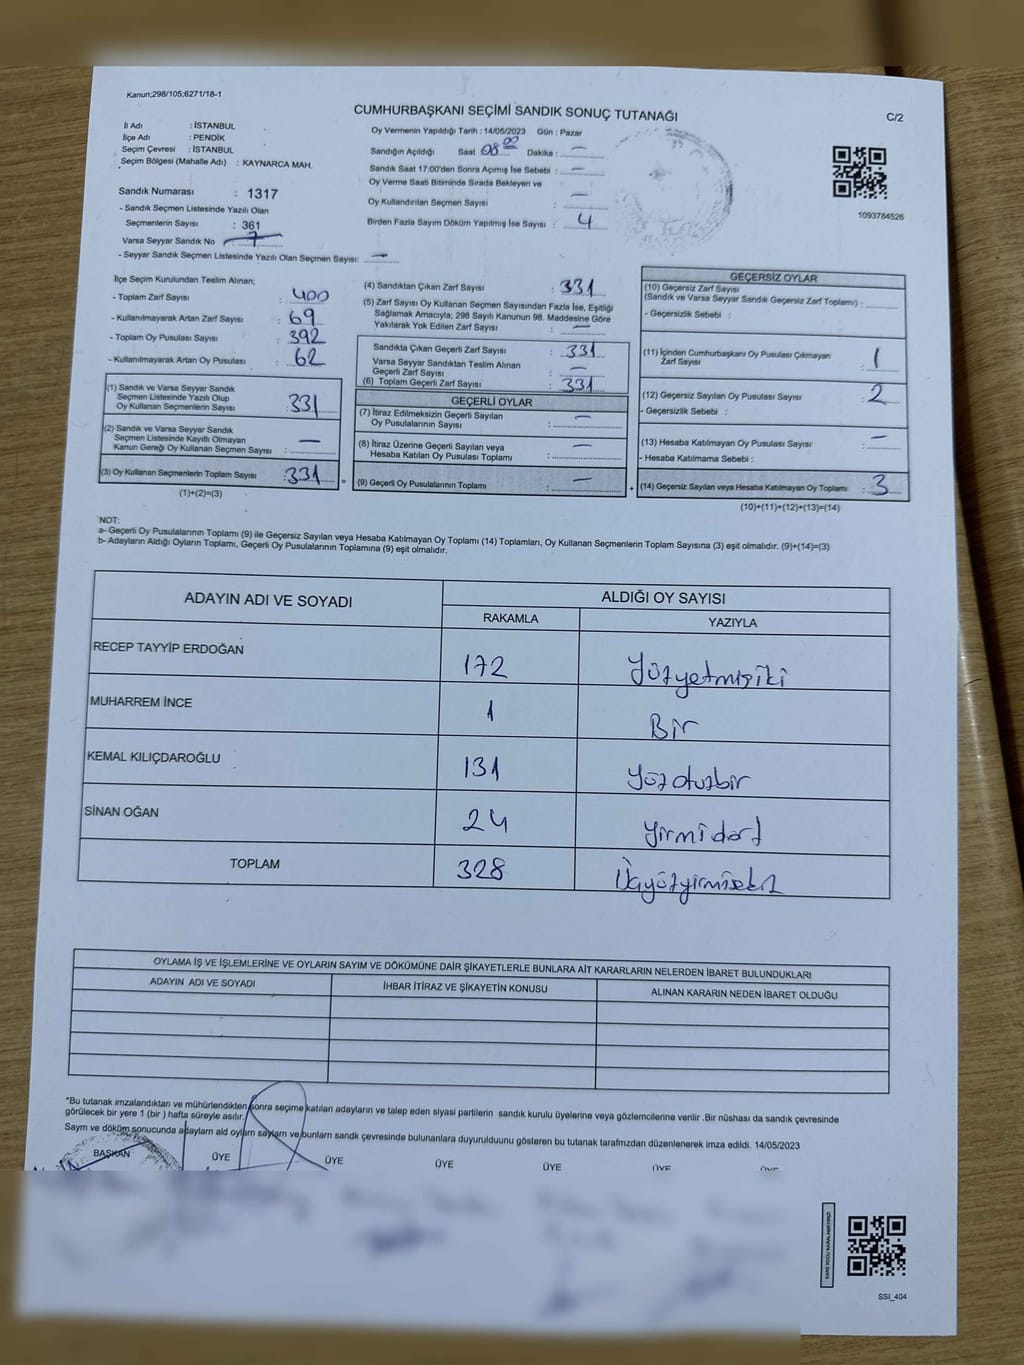 Kanun;298/105;6271/18-1
CUMHURBAŞKANI SEÇİMİ SANDIK SONUÇ TUTANAĞI
C/2
İl Adı : İSTANBUL
İlçe Adı : PENDİK
Seçim Çevresi : İSTANBUL
Seçim Bölgesi (Mahalle Adı) : KAYNARCA MAH.
Sandık Numarası : 1317
- Sandık Seçmen Listesinde Yazılı Olan
Seçmenlerin Sayısı : 361
Varsa Seyyar Sandık No
- Seyyar Sandık Seçmen Listesinde Yazılı Olan Seçmen Sayısı: —
Oy Vermenin Yapıldığı Tarih : 14/05/2023 Gün : Pazar
Sandığın Açıldığı Saat 08 00 Dakika : —
Sandık Saat 17:00'den Sonra Açımış İse Sebebi : —
Oy Verme Saati Bitiminde Sırada Bekleyen ve
Oy Kullandırılan Seçmen Sayısı : —
Birden Fazla Sayım Döküm Yapılmış İse Sayısı : 4
1093784526
İlçe Seçim Kurulundan Teslim Alınan;
- Toplam Zarf Sayısı : 400
- Kullanılmayarak Artan Zarf Sayısı : 69
- Toplam Oy Pusulası Sayısı : 392
- Kullanılmayarak Artan Oy Pusulası : 62
(1) Sandık ve Varsa Seyyar Sandık
Seçmen Listesinde Yazılı Olup
Oy Kullanan Seçmenlerin Sayısı : 331
(2) Sandık ve Varsa Seyyar Sandık
Seçmen Listesinde Kayıtlı Olmayan
Kanun Gereği Oy Kullanan Seçmen Sayısı : —
(3) Oy Kullanan Seçmenlerin Toplam Sayısı : 331
(1)+(2)=(3)
(4) Sandıktan Çıkan Zarf Sayısı : 331
(5) Zarf Sayısı Oy Kullanan Seçmen Sayısından Fazla İse, Eşitliği
Sağlamak Amacıyla; 298 Sayılı Kanunun 98. Maddesine Göre
Yakılarak Yok Edilen Zarf Sayısı : —
Sandıkta Çıkan Geçerli Zarf Sayısı : 331
Varsa Seyyar Sandıktan Teslim Alınan
Geçerli Zarf Sayısı : —
(6) Toplam Geçerli Zarf Sayısı : 331
GEÇERLİ OYLAR
(7) İtiraz Edilmeksizin Geçerli Sayılan
Oy Pusulalarının Sayısı : —
(8) İtiraz Üzerine Geçerli Sayılan veya
Hesaba Katılan Oy Pusulası Toplamı : —
= (9) Geçerli Oy Pusulalarının Toplamı : —
GEÇERSİZ OYLAR
(10) Geçersiz Zarf Sayısı
(Sandık ve Varsa Seyyar Sandık Geçersiz Zarf Toplamı) :
- Geçersizlik Sebebi :
(11) İçinden Cumhurbaşkanı Oy Pusulası Çıkmayan
Zarf Sayısı : 1
(12) Geçersiz Sayılan Oy Pusulası Sayısı : 2
- Geçersizlik Sebebi :
(13) Hesaba Katılmayan Oy Pusulası Sayısı : —
- Hesaba Katılmama Sebebi :
+ (14) Geçersiz Sayılan veya Hesaba Katılmayan Oy Toplamı : 3
(10)+(11)+(12)+(13)=(14)
NOT:
a- Geçerli Oy Pusulalarının Toplamı (9) ile Geçersiz Sayılan veya Hesaba Katılmayan Oy Toplamı (14) Toplamları, Oy Kullanan Seçmenlerin Toplam Sayısına (3) eşit olmalıdır. (9)+(14)=(3)
b- Adayların Aldığı Oyların Toplamı, Geçerli Oy Pusulalarının Toplamına (9) eşit olmalıdır.
ADAYIN ADI VE SOYADI ALDIĞI OY SAYISI
RAKAMLA YAZIYLA
RECEP TAYYİP ERDOĞAN 172 Yüzyetmişiki
MUHARREM İNCE 1 Bir
KEMAL KILIÇDAROĞLU 131 Yüzotuzbir
SİNAN OĞAN 24 Yirmidört
TOPLAM 328 Üçyüzyirmisekiz
OYLAMA İŞ VE İŞLEMLERİNE VE OYLARIN SAYIM VE DÖKÜMÜNE DAİR ŞİKAYETLERLE BUNLARA AİT KARARLARIN NELERDEN İBARET BULUNDUKLARI
ADAYIN ADI VE SOYADI İHBAR İTİRAZ VE ŞİKAYETİN KONUSU ALINAN KARARIN NEDEN İBARET OLDUĞU
*Bu tutanak imzalandıktan ve mühürlendikten sonra seçime katılan adayların ve talep eden siyasi partilerin sandık kurulu üyelerine veya gözlemcilerine verilir .Bir nüshası da sandık çevresinde
görülecek bir yere 1 (bir ) hafta süreyle asılır.
Sayım ve döküm sonucunda adayların aldı oyların sayılarn ve bunların sandk çevresinde bulunanlara duyurulduunu gösteren bu tutanak tarafmzdan düzenlenerek imza edildi. 14/05/2023
BAŞKAN ÜYE ÜYE ÜYE ÜYE ÜYE ÜYE
SSI_404